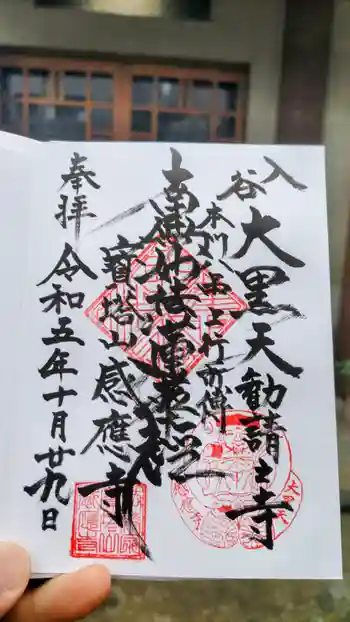 入谷
大黒天勧請之寺
本門八品上行所傳
南無妙法蓮華経
寶塔山
感應寺
奉拝
令和五年十月廿九日